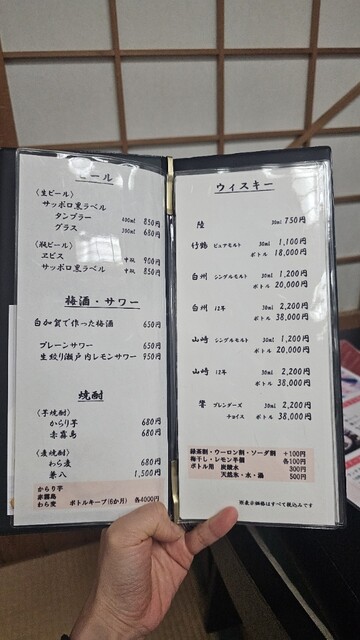 ビール
〈生ビール〉
サッポロ黒ラベル
タンブラー 400ml 850円
グラス 300ml 680円
〈瓶ビール〉
ヱビス 中瓶 900円
サッポロ黒ラベル 中瓶 850円
梅酒・サワー
白加賀で作った梅酒 650円
プレーンサワー 650円
生絞り瀬戸内レモンサワー 950円
焼酎
〈芋焼酎〉
からり芋 680円
赤霧島 680円
〈麦焼酎〉
わら麦 680円
兼八 1,500円
からり芋
赤霧島
わら麦 ボトルキープ(6か月) 各4000円
ウィスキー
陸 30ml 750円
竹鶴 ピュアモルト 30ml 1,100円
ボトル 18,000円
白州 シングルモルト 30ml 1,200円
ボトル 20,000円
白州 12年 30ml 2,200円
ボトル 38,000円
山崎 シングルモルト 30ml 1,200円
ボトル 20,000円
山崎 12年 30ml 2,200円
ボトル 38,000円
響 ブレンダーズ 30ml 2,200円
チョイス ボトル 38,000円
緑茶割・ウーロン割・ソーダ割 +100円
梅干し・レモン半個 各100円
ボトル用 炭酸水 300円
天然水・水・湯 500円
※表示価格はすべて税込みです